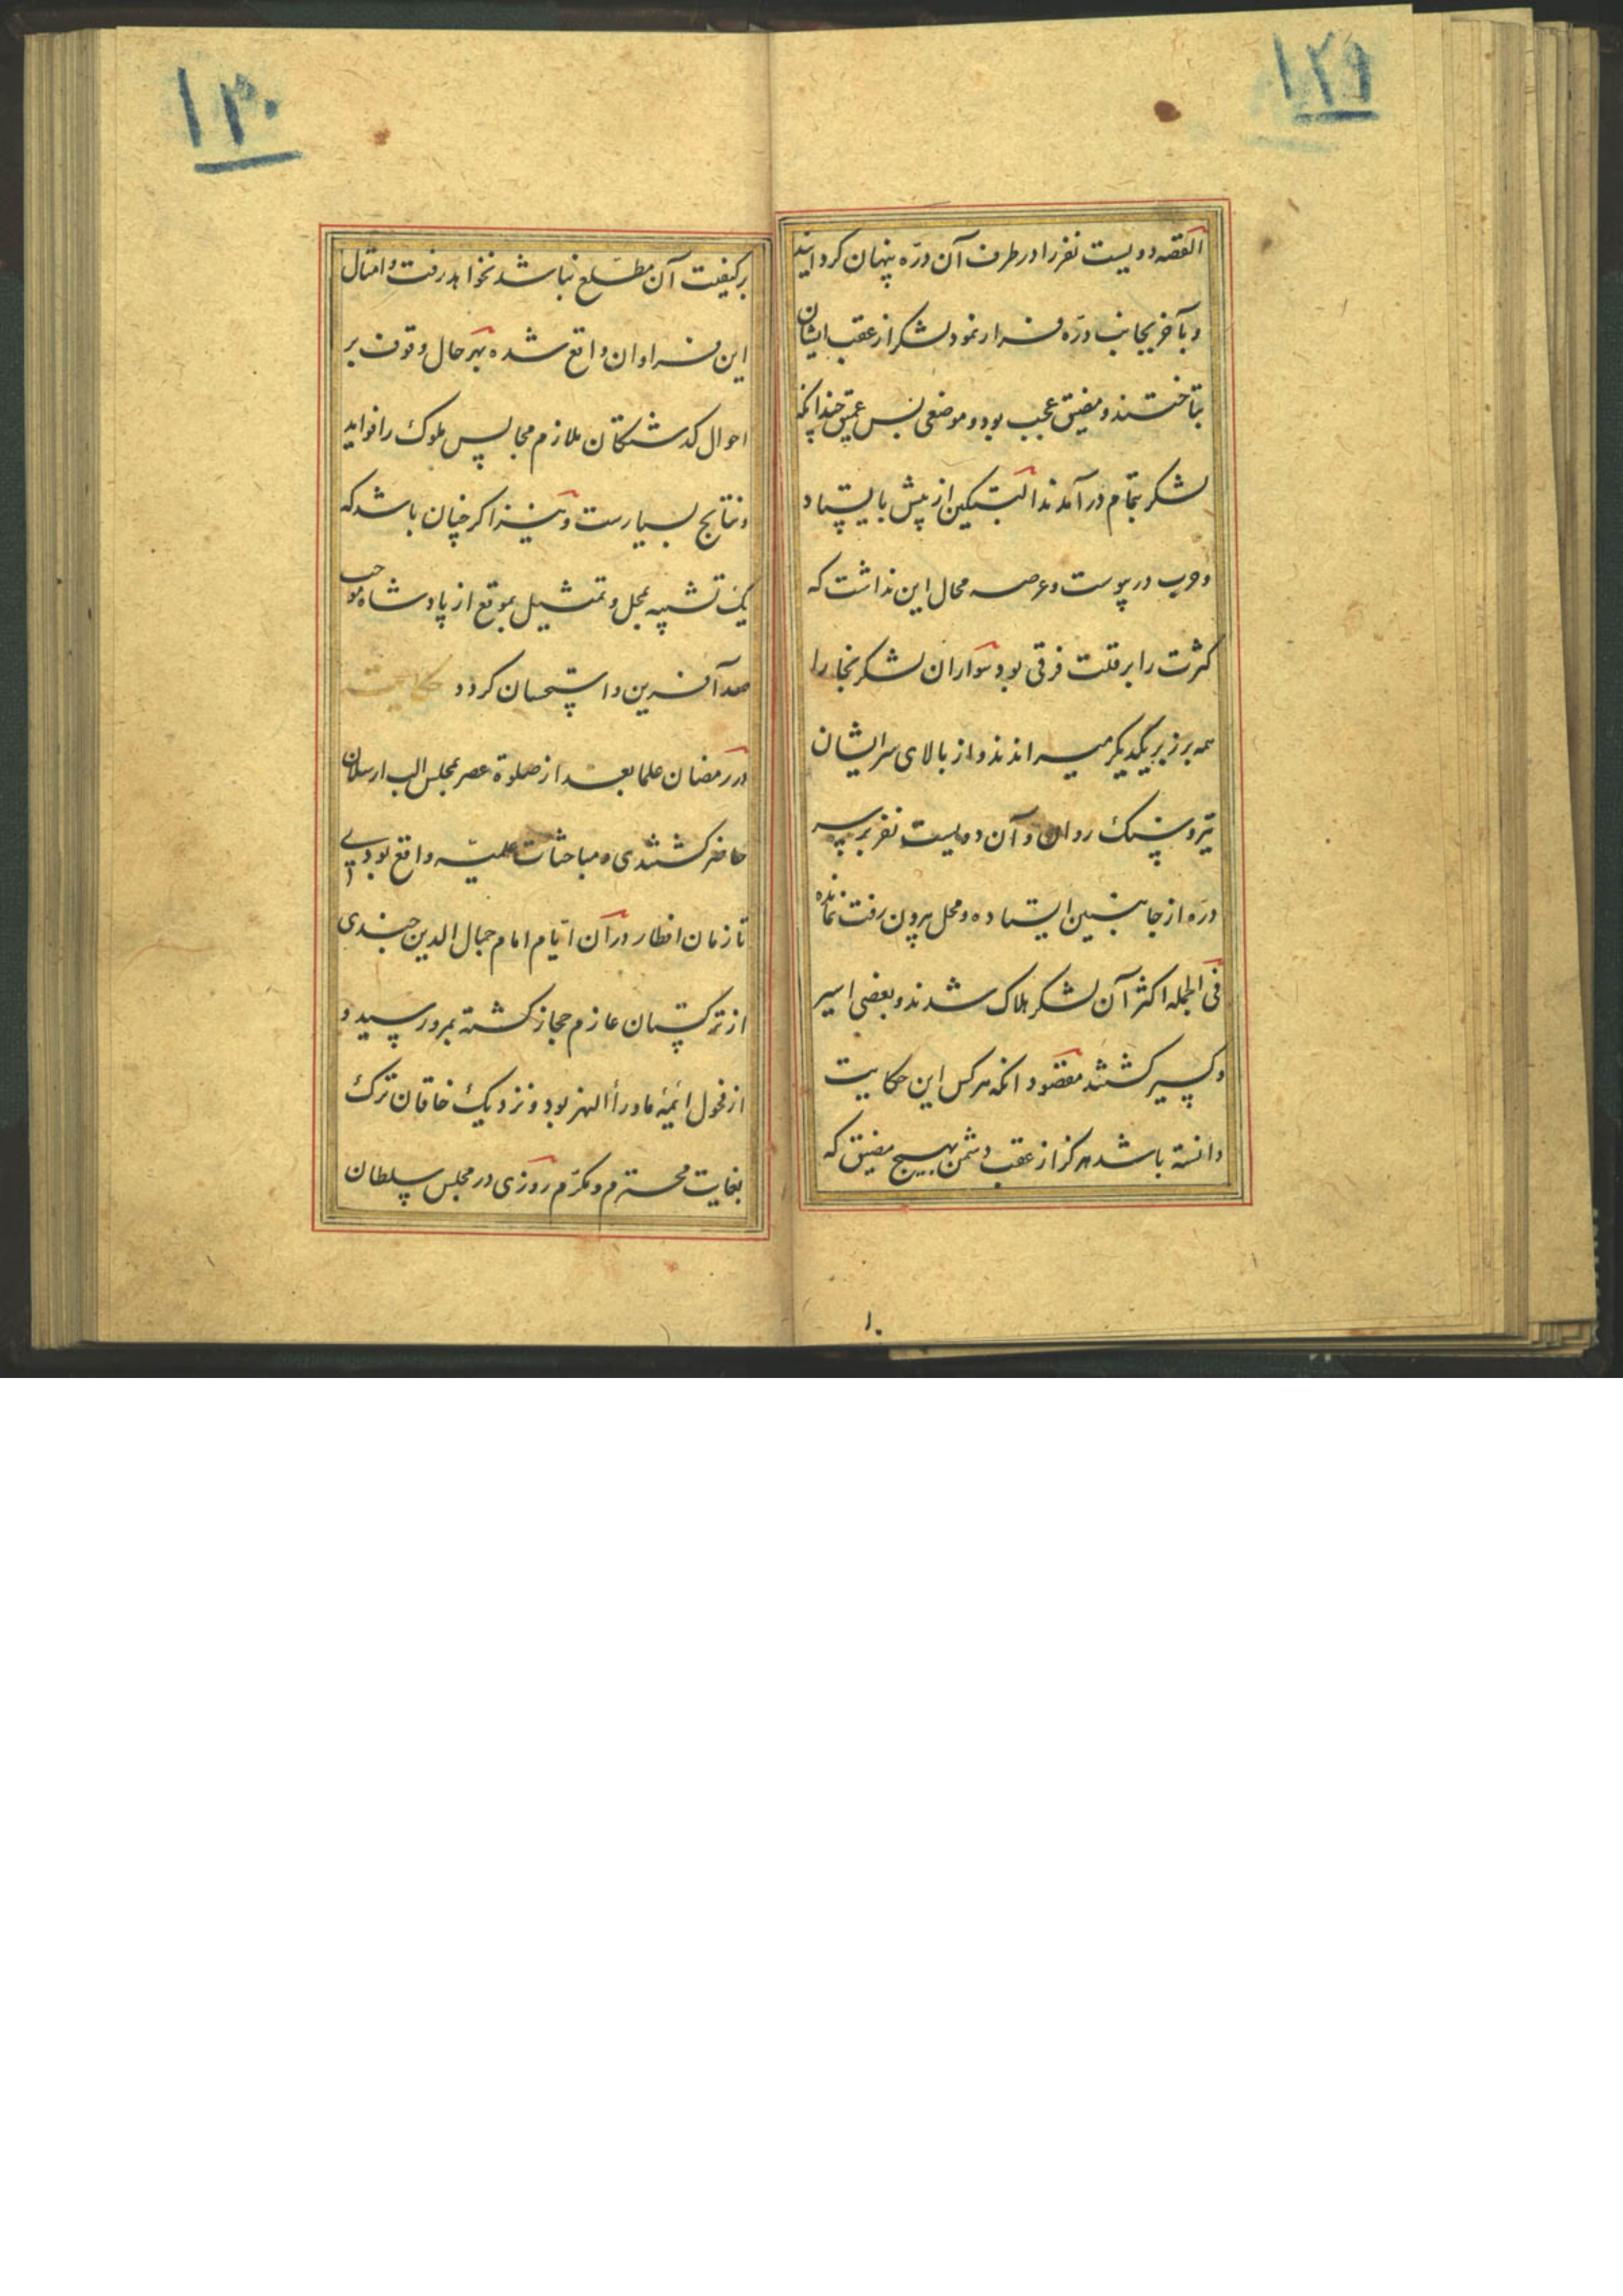 ۱۲۹
القصه دویست نفر را در طرف آن درّه پنهان کردانید
و بآخر بجانب درّه فرار نمود لشکر از عقب ایشان
بتاختند و مضیق عجب بود و موضعی بس عمیق چندانکه
لشکر بتمام درآمدند البتکین از پیش بایستاد
و حرب در پیوست و عرصه مجال این نداشت که
کثرت را بر قلت فرقی بود سواران لشکر بخارا
همه بر زبر یکدیکر میراندند و از بالای سر ایشان
تیر و سنک روان و آن دویست نفر بر سر
درّه از جانبین ایستاده و محل بیرون رفت نمانده
فی الجمله اکثر آن لشکر هلاک شدند و بعضی اسیر
و کسیر کشتند مقصود آنکه هر کس این حکایت
دانسته باشد هرکز از عقب دشمن بهیچ مضیق که
۱۰
۱۳۰
بر کیفیت آن مطّلع نباشد نخواهد رفت و امثال
این فراوان واقع شده بهر حال وقوف بر
احوال کذشتکان ملازم مجالس ملوک را فواید
و نتایج بسیارست و نیز اکر چنان باشد که
یک تشبیه بمحل و تمثیل بموقع از پادشاه موجب
صد آفرین و استحسان کردد حکایت
در رمضان علما بعد از صلوة عصر بمجلس الب ارسلان
حاضر کشتندی و مباحثات علمیّه واقع بودی
تا زمان افطار در آن ایّام امام جمال الدین خجندی
از ترکستان عازم حجاز کشته بمرو رسید و
از فحول ائمهٔ ماوراء النهر بود و نزدیک خاقان ترک
بغایت محترم و مکرّم روزی در مجلس سلطان